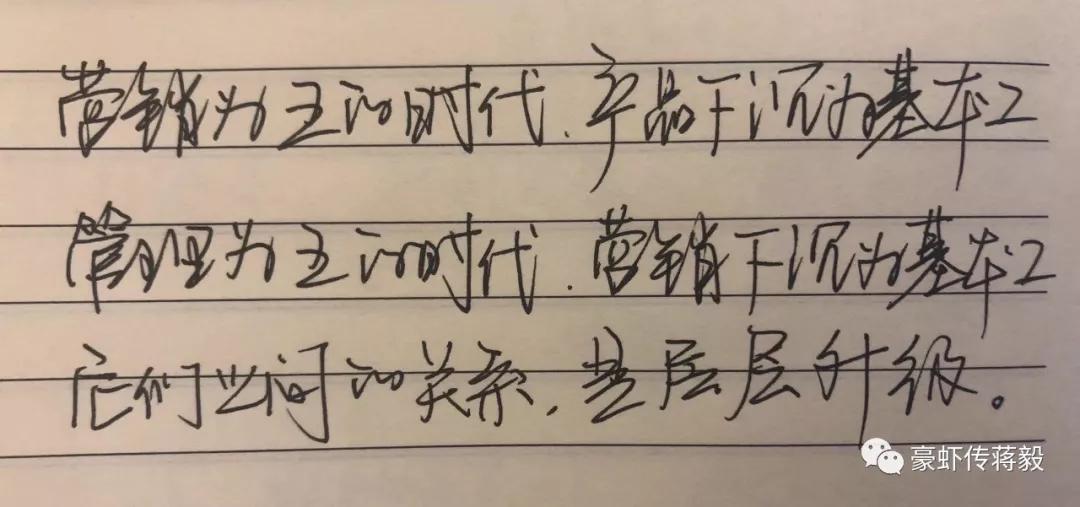 营销为王的时代.产品下沉为基本工
管理为王的时代.营销下沉为基本工
它们之间的关系,是层层升级。
豪虾传蒋毅